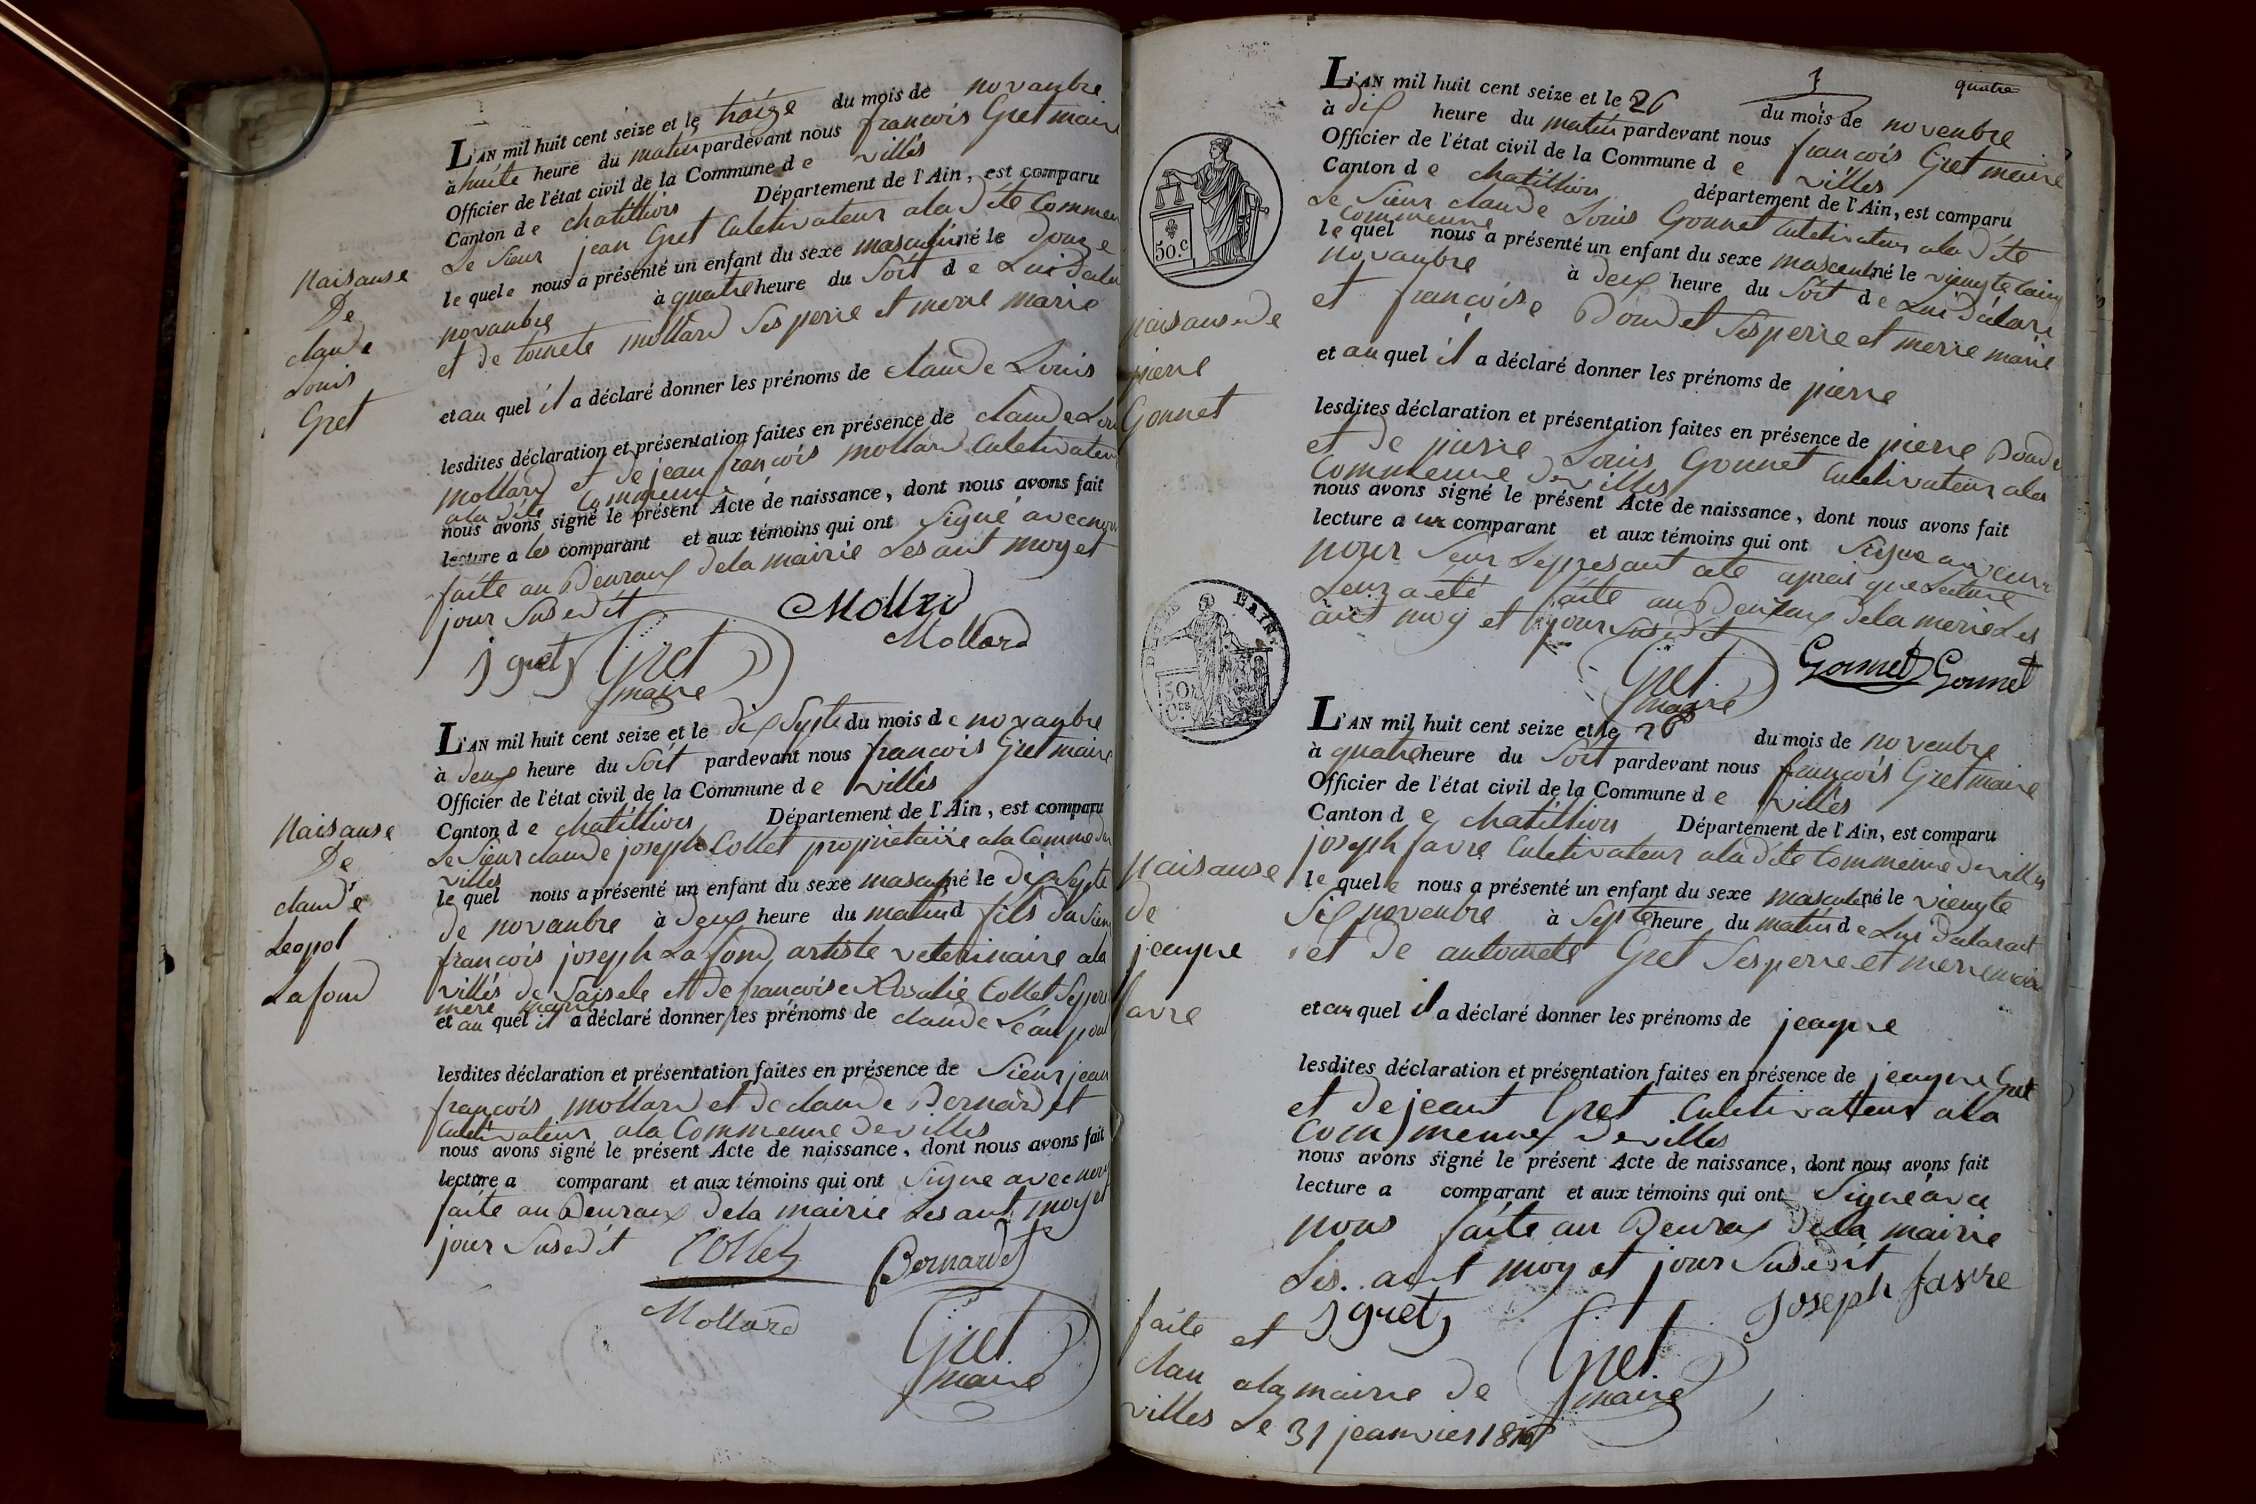 L'AN mil huit cent seize et le traize du mois de novanbre
à huite heure du matin pardevant nous francois Gret maire
Officier de l'état civil de la Commune de villés
Canton de chatillions Département de l'Ain, est comparu
Le Sieur jean Gret Culetivateur ala dite Commen
le quele nous a présenté un enfant du sexe masculin né le douze
novanbre à quatre heure du Soit de Lui Déclar
et de toinete mollard Ses perre et merre marié
et au quel il a déclaré donner les prénoms de claude Louis
lesdites déclaration et présentation faites en présence de claude Loui
mollard et de jean francois mollard Culetivateur
ala dite Commeune
nous avons signé le présent Acte de naissance, dont nous avons fait
lecture a les comparant et aux témoins qui ont Signé avec nous
faite au Beuraux dela mairie Les ant moy et
jour Susedit
Mollard
Mollard
j gret
Gret
maire
Naisanse
De
claude
Louis
Gret
L'AN mil huit cent seize et le dix Sypte du mois de novanbre
à deux heure du Soit pardevant nous francois Gret maire
Officier de l'état civil de la Commune de villés
Canton de chatillions Département de l'Ain, est comparu
Le Sieur claude joseph Collet propriétaire ala Comme de
villes
le quel nous a présenté un enfant du sexe masculin né le dix Sypte
de novanbre à deux heure du matin d fils du Sieur
francois joseph Lafond artiste veterinaire ala
villés de Saisele et de francoise Rosalie Collet Se pere
mere marié
et au quel il a déclaré donner les prénoms de claude Léaupout
lesdites déclaration et présentation faites en présence de Sieur jean
francois mollard et de claude Bernard et
Culetivateur ala Commeunne de villes
nous avons signé le présent Acte de naissance, dont nous avons fait
lecture a comparant et aux témoins qui ont Signe avec nous
faite au Beuraux dela mairie Les ant moy et
jour Susedit
Collet
Bernardet
Mollard
Gret
maire
Naisanse
De
claude
Leopol
Lafond
quatre
L'AN mil huit cent seize et le 26 du mois de novenbre
à dix heure du matin pardevant nous francois Gret maire
Officier de l'état civil de la Commune de villes
Canton de chatillion département de l'Ain, est comparu
Le Sieur claude Louis Gonnet Culetivateur ala dite
Commeunne
le quel nous a présenté un enfant du sexe masculin né le vienyte Cainq
novanbre à deux heure du Soit de Lui déclaré
et francoise Boudet Ses perre et merre marié
et au quel il a déclaré donner les prénoms de pierre
lesdites déclaration et présentation faites en présence de pierre Boude
et de pierre Louis Gonnet Culetivateur ala
Commeunne de villes
nous avons signé le présent Acte de naissance, dont nous avons fait
lecture a comparant et aux témoins qui ont Signe avec
pour Leur Le presant ate aprais que Lecture
Leur a été faite au Beuraux dela merie Les
ant moy et jour Susedit
Gret
maire
Gonnet Gonnet
50.c
naisanse de
pierre
Gonnet
L'AN mil huit cent seize et le 26 du mois de novenbre
à quatre heure du Soit pardevant nous francois Gret maire
Officier de l'état civil de la Commune de villés
Canton de chatillion Département de l'Ain, est comparu
joseph favre Culetivateur ala dite Commeune de villes
le quele nous a présenté un enfant du sexe masculin né le vienyte
Six novenbre à Septe heure du matin de Lui déclarant
et de antoinete Gret Ses perre et merre marié
et au quel il a déclaré donner les prénoms de jeaque
lesdites déclaration et présentation faites en présence de jeaque Gret
et de jeant Gret Culetivatteur ala
Commeunne de villes
nous avons signé le présent Acte de naissance, dont nous avons fait
lecture a comparant et aux témoins qui ont Signe avec
nous faite au Beurax dela mairie
Les ant moy et jour Susedit
joseph favre
j gret
Gret
maire
Naisanse
de
jeaque
favre
faite et
clau ala mairie de
villes Le 31 jeanvier 1817